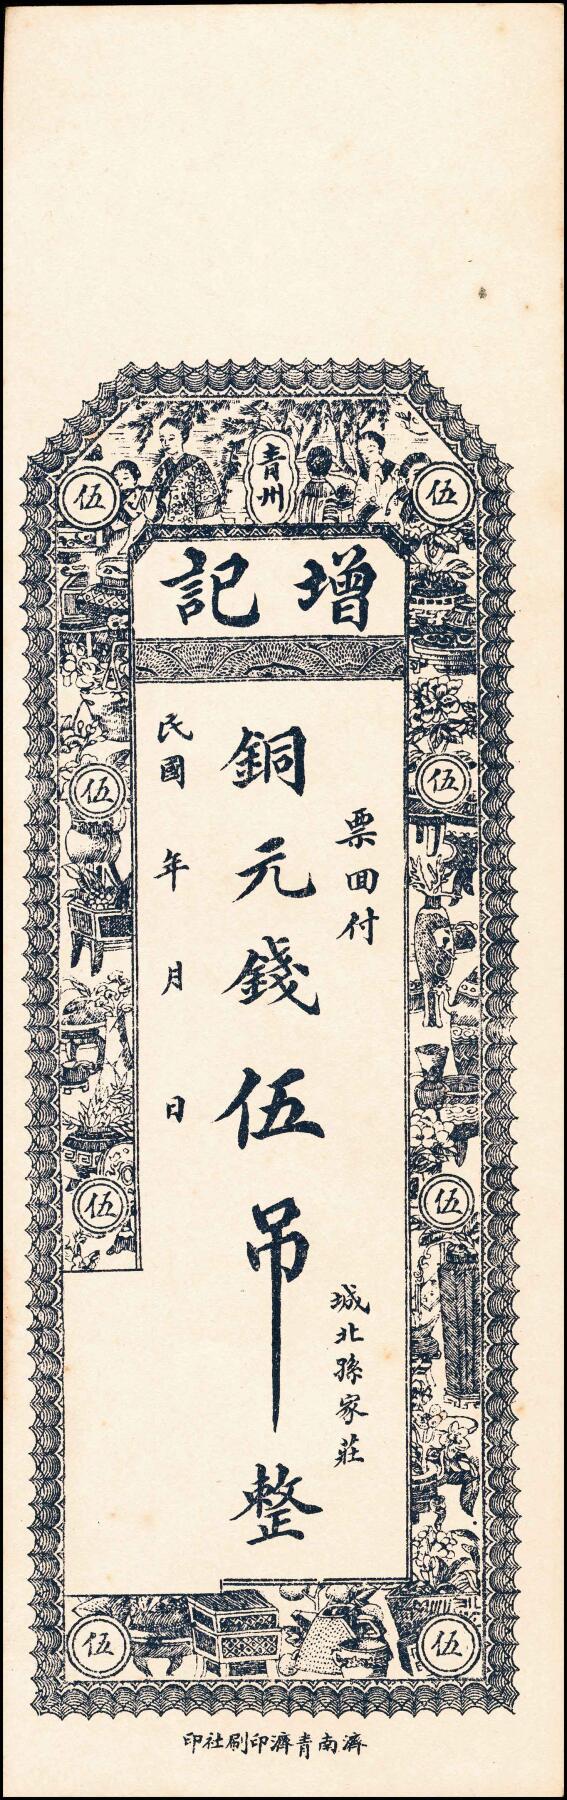 青州
伍
伍
增記
票面付
城北孫家莊
銅元錢伍吊整
民國 年 月 日
伍
伍
伍
伍
伍
伍
濟南青濟印刷社印